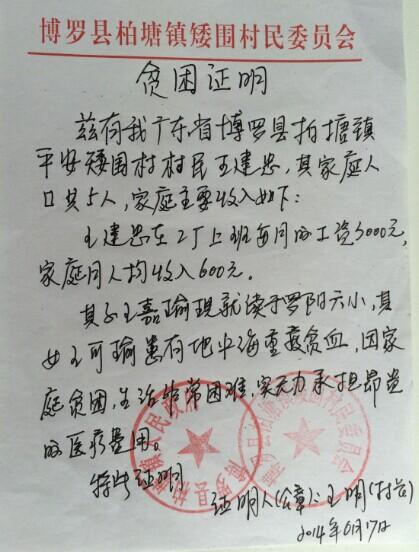 博罗县柏塘镇矮围村民委员会
贫困证明
兹有我广东省博罗县柏塘镇
平安矮围村村民王建忠,其家庭人
口共5人,家庭主要收入如下:
王建忠在工厂上班每月的工资3000元,
家庭月人均收入600元。
其子王嘉瑜现就读于罗阳六小,其
女王可瑜患有地中海重度贫血,因家
庭贫困,生活非常困难,实无力承担昂贵
的医疗费用。
特此证明
证明人(公章):王明(村台)
2014年6月17日